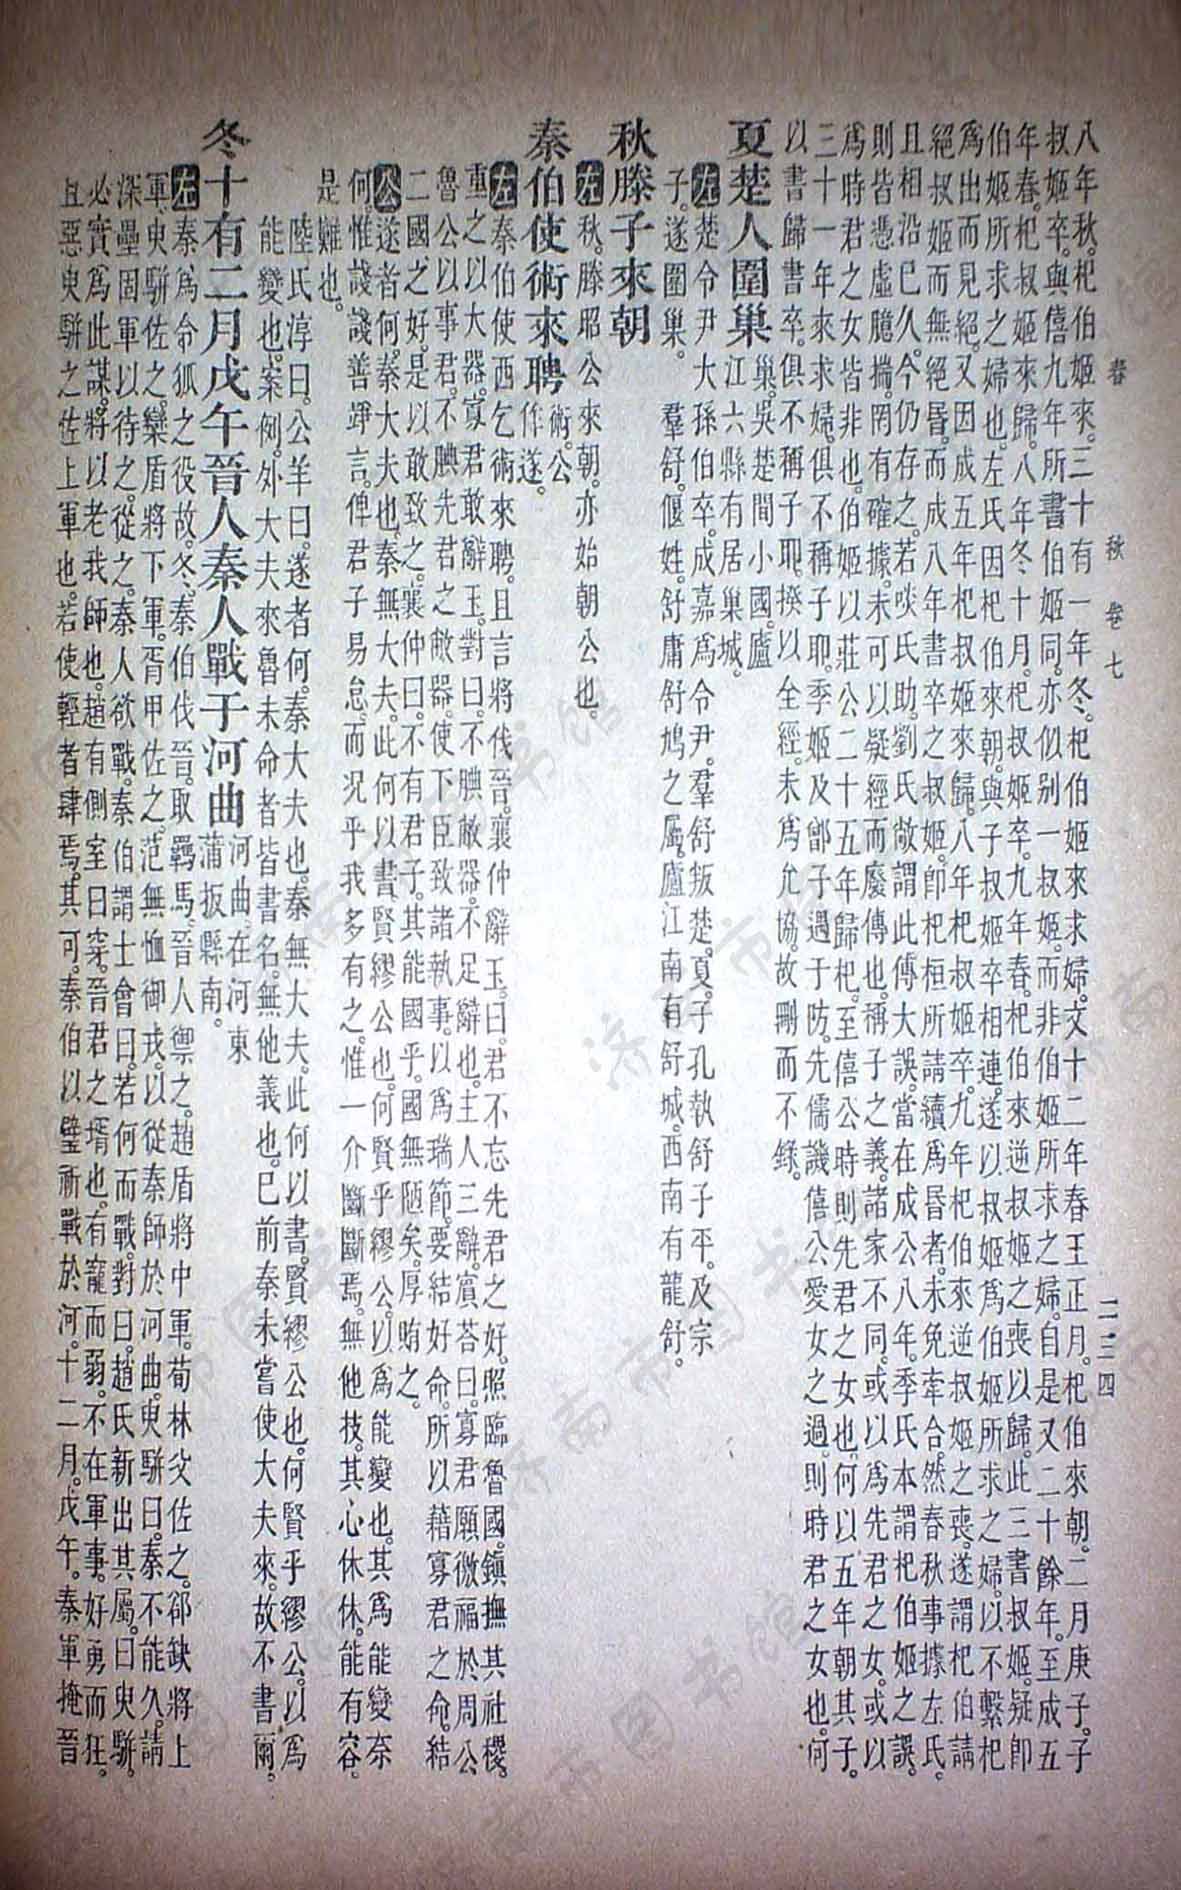 春　秋　卷七　二三四
八年秋。杞伯姬來。三十有一年冬。杞伯姬來求婦。文十二年春王正月。杞伯來朝。二月庚子。子
叔姬卒。與僖九年所書伯姬同。亦似别一叔姬。而非伯姬所求之婦。自是又二十餘年。至成五
年春。杞叔姬來歸。八年冬十月。杞叔姬卒。九年春。杞伯來逆叔姬之喪以歸。此三書叔姬。疑卽
伯姬所求之婦也。左氏因杞伯來朝。與子叔姬卒相連。遂以叔姬爲伯姬所求之婦。以不繫杞
爲出而見絕。又因成五年杞叔姬來歸。八年杞叔姬卒。九年杞伯來逆叔姬之喪。遂謂杞伯請
絕叔姬而無絕昏。而成八年書卒之叔姬。卽杞桓所請續爲昏者。未免牽合。然春秋事據左氏。
且相沿已久。今仍存之。若啖氏助。劉氏敞謂此傳大誤。當在成公八年。季氏本謂杞伯姬之誤。
則皆憑虛臆揣。罔有確據。未可以疑經而廢傳也。稱子之義。諸家不同。或以爲先君之女。或以
爲時君之女。皆非也。伯姬以莊公二十五年歸杞。至僖公時。則先君之女也。何以五年朝其子。
三十一年來求婦。俱不稱子耶。季姬及鄫子遇于防。先儒譏僖公愛女之過。則時君之女也。何
以書歸書卒。俱不稱子耶。揆以全經。未爲允協。故刪而不錄。
夏楚人圍巢 巢。吳楚間小國。廬
江六縣有居巢城。
左楚令尹大孫伯卒。成嘉爲令尹。羣舒叛楚。夏。子孔執舒子平。及宗
子。遂圍巢。羣舒。偃姓。舒庸舒鳩之屬。廬江南有舒城。西南有龍舒。
秋滕子來朝
左秋。滕昭公來朝。亦始朝公也。
秦伯使術來聘 術。公
作遂。
左秦伯使西乞術來聘。且言將伐晉。襄仲辭玉。曰。君不忘先君之好。照臨魯國。鎭撫其社稷。
重之以大器。寡君敢辭玉。對曰。不腆敝器。不足辭也。主人三辭。賓荅曰。寡君願徼福於周公
魯公以事君。不腆先君之敝器。使下臣致諸執事。以爲瑞節。要結好命。所以藉寡君之命。結
二國之好。是以敢致之。襄仲曰。不有君子。其能國乎。國無陋矣。厚賄之。
公遂者何。秦大夫也。秦無大夫。此何以書。賢繆公也。何賢乎繆公。以爲能變也。其爲能變奈
何。惟諓諓善竫言。俾君子易怠。而況乎我多有之。惟一介斷斷焉。無他技。其心休休。能有容。
是難也。
陸氏淳曰。公羊曰。遂者何。秦大夫也。秦無大夫。此何以書。賢繆公也。何賢乎繆公。以爲
能變也。案例。外大夫來魯未命者皆書名。無他義也。已前秦未嘗使大夫來。故不書爾。
冬十有二月戊午晉人秦人戰于河曲 河曲。在河東
蒲坂縣南。
左秦爲令狐之役故。冬。秦伯伐晉。取羈馬。晉人禦之。趙盾將中軍。荀林父佐之。郤缺將上
軍。臾駢佐之。欒盾將下軍。胥甲佐之。范無恤御戎。以從秦師於河曲。臾駢曰。秦不能久。請
深壘固軍以待之。從之。秦人欲戰。秦伯謂士會曰。若何而戰。對曰。趙氏新出其屬。曰臾駢。
必實爲此謀。將以老我師也。趙有側室曰穿。晉君之壻也。有寵而弱。不在軍事。好勇而狂。
且惡臾駢之佐上軍也。若使輕者肆焉。其可。秦伯以璧祈戰於河。十二月。戊午。秦軍掩晉